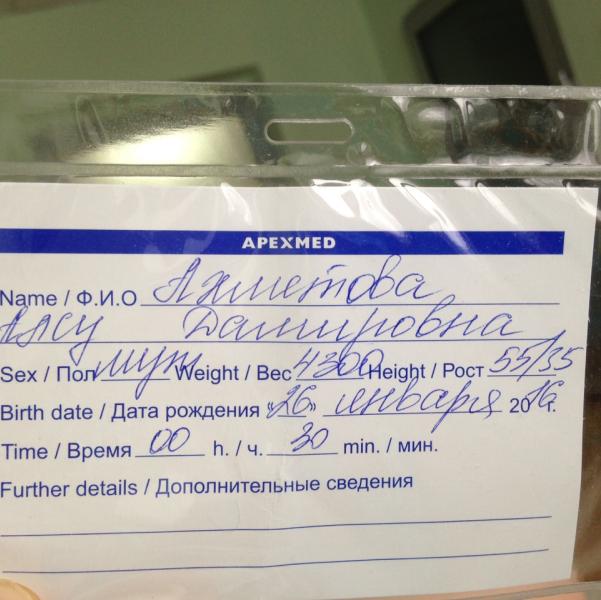 APEXMED
Name / Ф.И.О Ахметова
Алсу Дамировна
Sex / Пол муж Weight / Вес 4300 Height / Рост 55/35
Birth date / Дата рождения «26» января 2016 г.
Time / Время 00 h. / ч. 30 min. / мин.
Further details / Дополнительные сведения